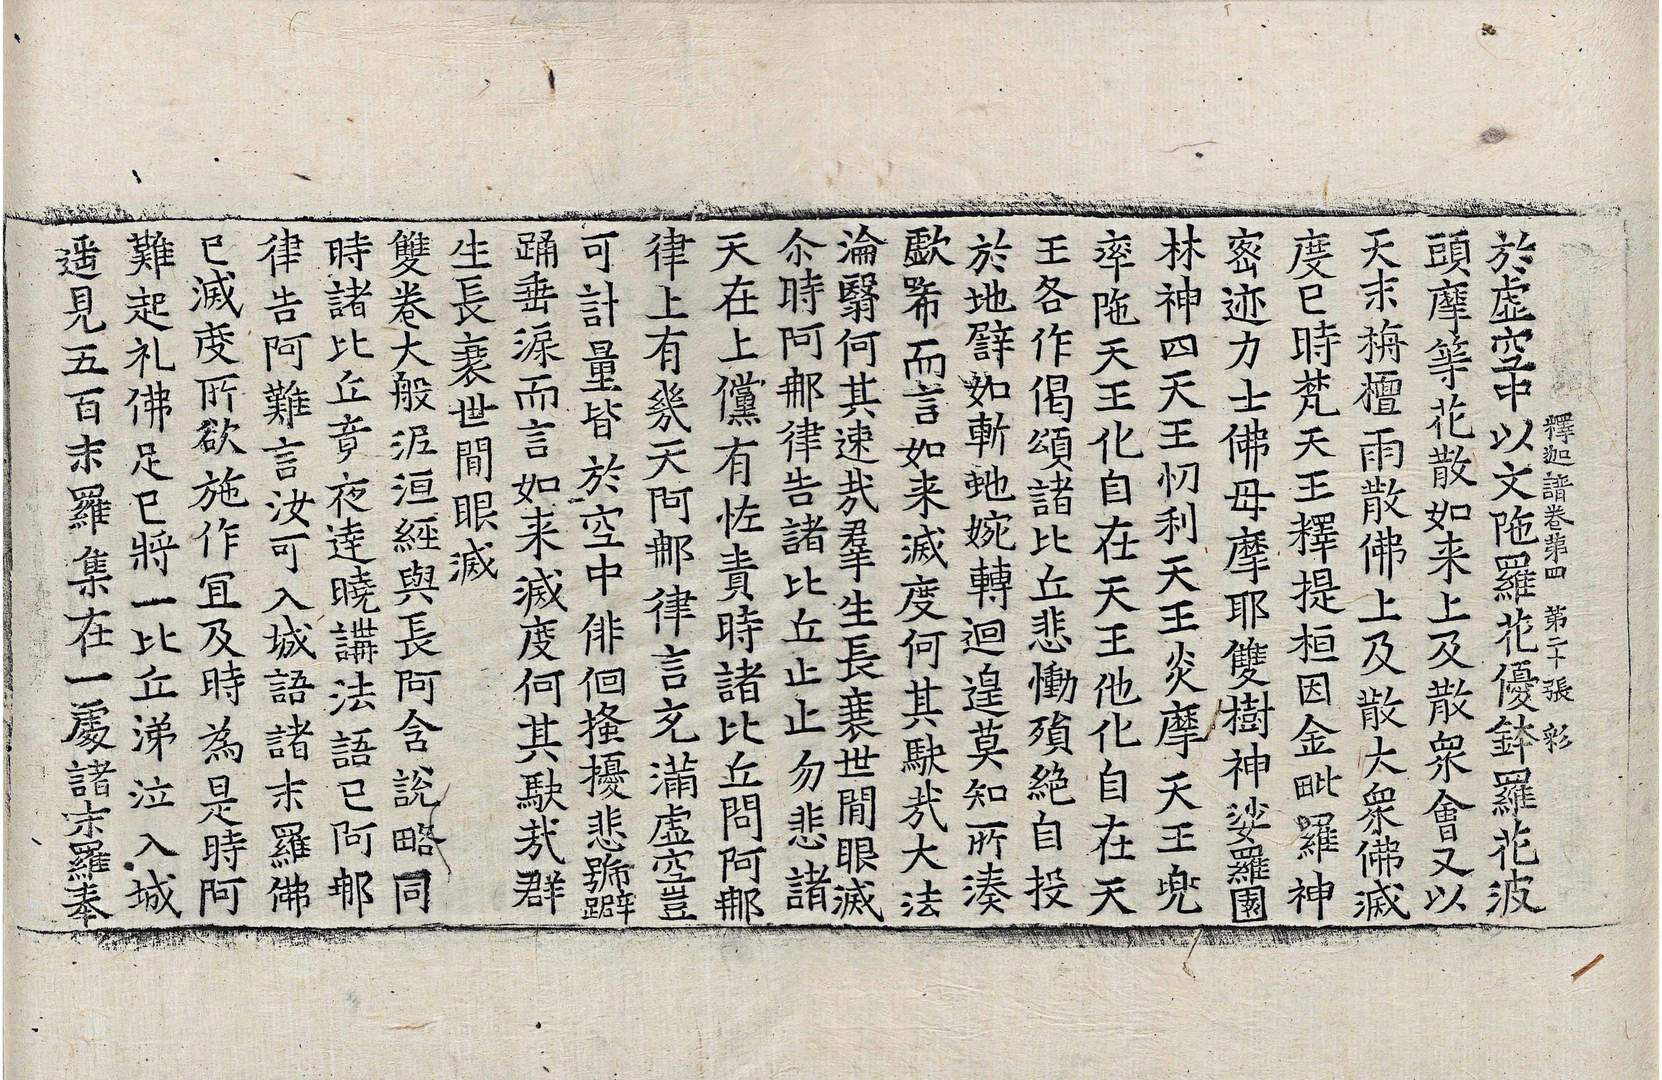 釋迦譜卷第四 第二十張 彩
於虛空中以文陁羅花優鉢羅花波
頭摩等花散如来上及散衆會又以
天末栴檀雨散佛上及散大衆佛滅
度已時梵天王釋提桓因金毗羅神
密迹力士佛母摩耶雙樹神娑羅園
林神四天王忉利天王炎摩天王兜
率陁天王化自在天王他化自在天
王各作偈頌諸比丘悲慟殞絶自投
於地譬如斬虵婉轉迴遑莫知所湊
歔欷而言如来滅度何其駛㢤大法
淪翳何其速㢤羣生長衰世間眼滅
尒時阿那律告諸比丘止止勿悲諸
天在上儻有恠責時諸比丘問阿那
律上有幾天阿那律言充滿虛空豈
可計量皆於空中俳徊搔擾悲號躃
踊垂淚而言如来滅度何其駛㢤群
生長衰世間眼滅
雙卷大般泥洹經與長阿含說略同
時諸比丘竟夜達曉講法語已阿那
律告阿難言汝可入城語諸末羅佛
已滅度所欲施作宜及時為是時阿
難起礼佛足已將一比丘涕泣入城
遥見五百末羅集在一處諸末羅奉